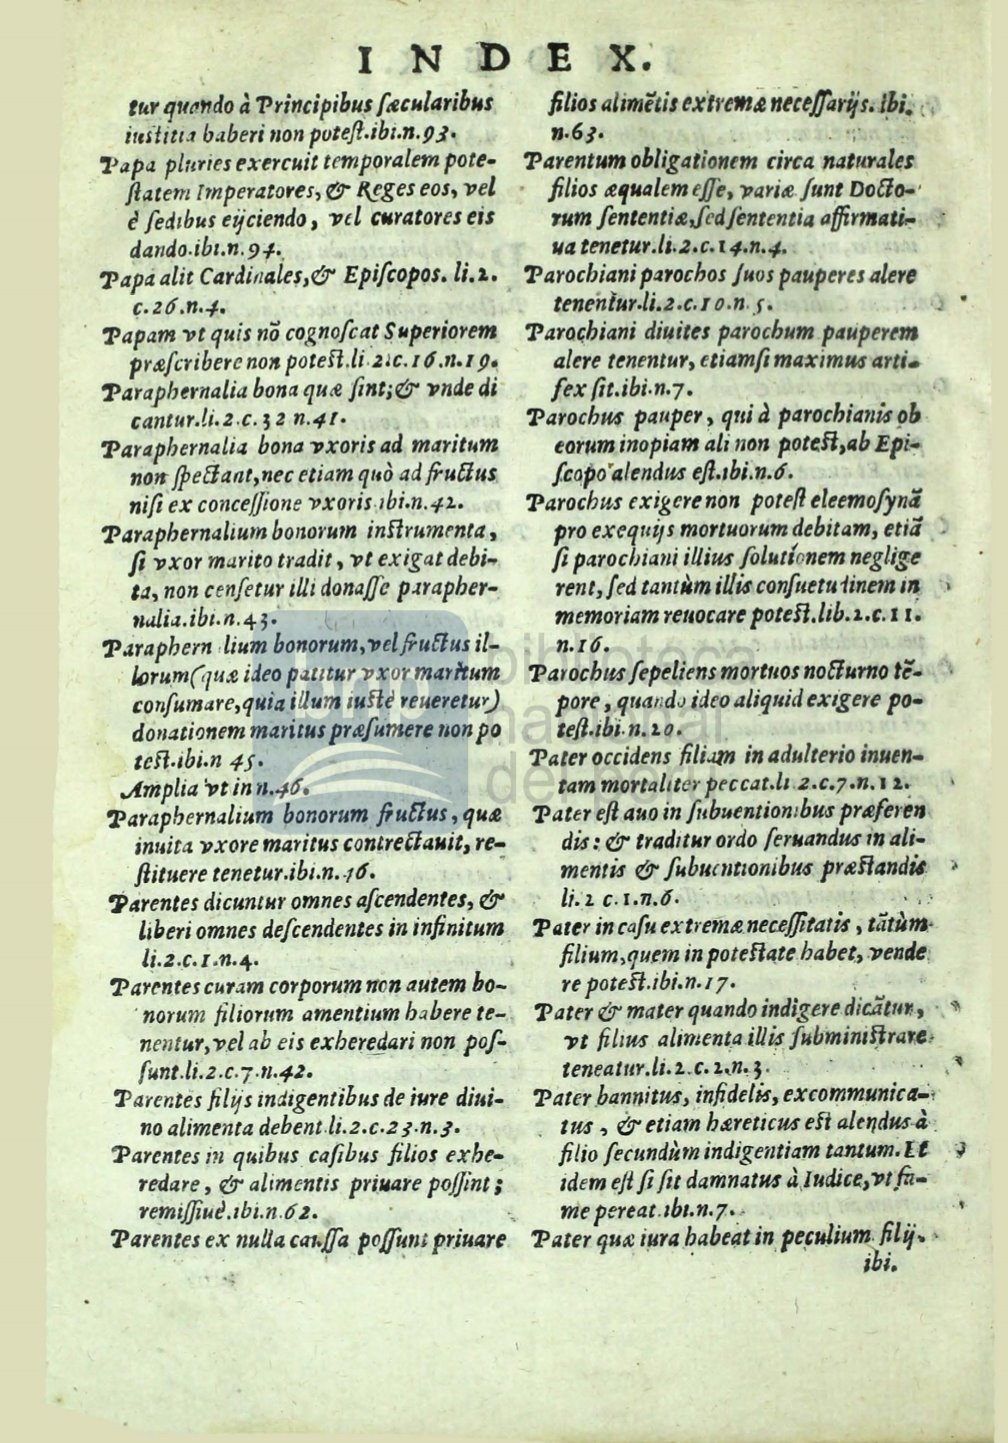 INDEX.
tur quando à Principibus ſæcularibus
iustitia haberi non poteſt.ibi.n.93.
Papa pluries exercuit temporalem pote-
ſtatem Imperatores, & Reges eos, vel
è ſedibus eijciendo, vel curatores eis
dando.ibi.n.94.
Papa alit Cardinales, & Epiſcopos. li.2.
c.26.n.4.
Papam vt quis nõ cognoſcat Superiorem
præſcribere non potest.li.2.c.16.n.19.
Paraphernalia bona quæ ſint; & vnde di
cantur.li.2.c.32 n.41.
Paraphernalia bona vxoris ad maritum
non ſpectant, nec etiam quò ad fructus
niſi ex conceſſione vxoris.ibi.n.42.
Paraphernalium bonorum instrumenta,
ſi vxor marito tradit, vt exigat debi-
ta, non cenſetur illi donaſſe parapher-
nalia.ibi.n.43.
Paraphern lium bonorum, vel fructus il-
lorum (quæ ideo patitur vxor maritum
conſumare, quia illum iustè reueretur)
donationem maritus præſumere non po
test.ibi.n 45.
Amplia vt in n.46.
Paraphernalium bonorum fructus, quæ
inuita vxore maritus contrectauit, re-
ſtituere tenetur.ibi.n.46.
Parentes dicuntur omnes aſcendentes, &
liberi omnes deſcendentes in infinitum
li.2.c.1.n.4.
Parentes curam corporum non autem bo-
norum filiorum amentium habere te-
nentur, vel ab eis exheredari non poſ-
ſunt.li.2.c.7.n.42.
Parentes filijs indigentibus de iure diui-
no alimenta debent.li.2.c.23.n.3.
Parentes in quibus caſibus filios exhe-
redare, & alimentis priuare poſſint;
remiſſiuè.ibi.n.62.
Parentes ex nulla cauſſa poſſunt priuare
filios alimẽtis extremæ neceſſarijs. ibi.
n.63.
Parentum obligationem circa naturales
filios æqualem eſſe, variæ ſunt Docto-
rum ſententiæ, ſed ſententia affirmati-
ua tenetur.li.2.c.14.n.4.
Parochiani parochos ſuos pauperes alere
tenentur.li.2.c.10.n.5.
Parochiani diuites parochum pauperem
alere tenentur, etiamſi maximus arti-
fex ſit.ibi.n.7.
Parochus pauper, qui à parochianis ob
eorum inopiam ali non potest, ab Epi-
ſcopo alendus eſt.ibi.n.6.
Parochus exigere non poteſt eleemoſynã
pro exequijs mortuorum debitam, etiã
ſi parochiani illius ſolutionem neglige
rent, ſed tantùm illis conſuetudinem in
memoriam reuocare potest.lib.2.c.11.
n.16.
Parochus ſepeliens mortuos nocturno tẽ-
pore, quando ideo aliquid exigere po-
teſt.ibi.n.20.
Pater occidens filiam in adulterio inuen-
tam mortaliter peccat.li 2.c.7.n.12.
Pater eſt auo in ſubuentionibus præferen
dis: & traditur ordo ſeruandus in ali-
mentis & ſubuentionibus præstandis
li.2 c.1.n.6.
Pater in caſu extremæ neceſſitatis, tãtùm
filium, quem in potestate habet, vende
re potest.ibi.n.17.
Pater & mater quando indigere dicãtur,
vt filius alimenta illis ſubministrare
teneatur.li.2.c.2.n.3.
Pater bannitus, infidelis, excommunica-
tus, & etiam hæreticus est alendus à
filio ſecundùm indigentiam tantum. Et
idem eſt ſi ſit damnatus à Iudice, vt fa-
me pereat.ibi.n.7.
Pater quæ iura habeat in peculium filij.
ibi.
biblioteca
nacional
de